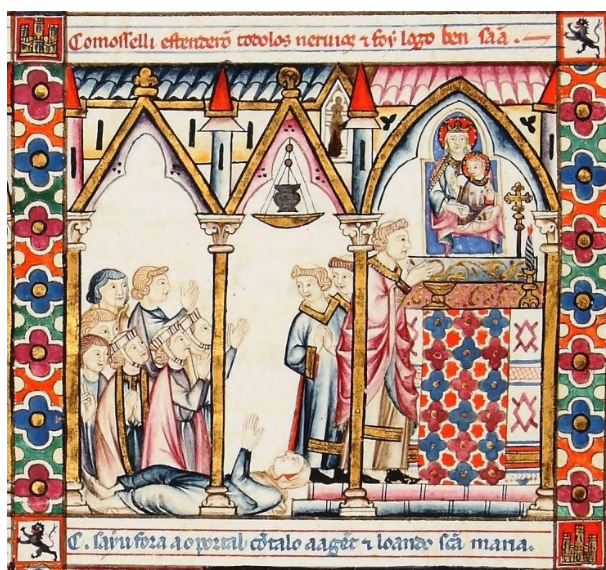 Comosselli estenderõ todolos neruios ⁊ foy logo ben sãa .
C. sayu fora ao portal cõtalo aa gẽt ⁊ loando scã maria.